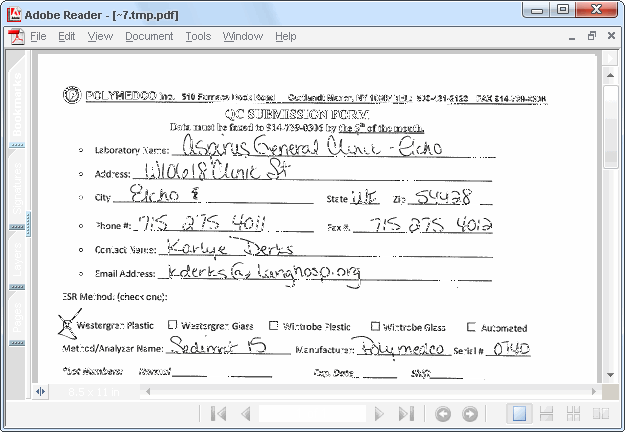 Adobe Reader - [~7.tmp.pdf]
File Edit View Document Tools Window Help
POLYMEDCO Inc. 510 Furnace Dock Road Cortlandt Manor, NY
QC SUBMISSION FORM
Data must be faxed to 914-739-0306 by the 5th of the month.
Laboratory Name: Aspirus General Clinic - Elcho
Address: Clinic St
City Elcho State WI Zip 54428
Phone #: 715 275 4011 Fax #: 715 275 4012
Contact Name: Karlye Derks
Email Address:
ESR Method: (check one):
Westergren Plastic Westergren Glass Wintrobe Plastic Wintrobe Glass Automated
Method/Analyzer Name: Sedimat 15 Manufacturer: Polymedco Serial # 0740
Normal Exp. Date
8.5 x 11 in